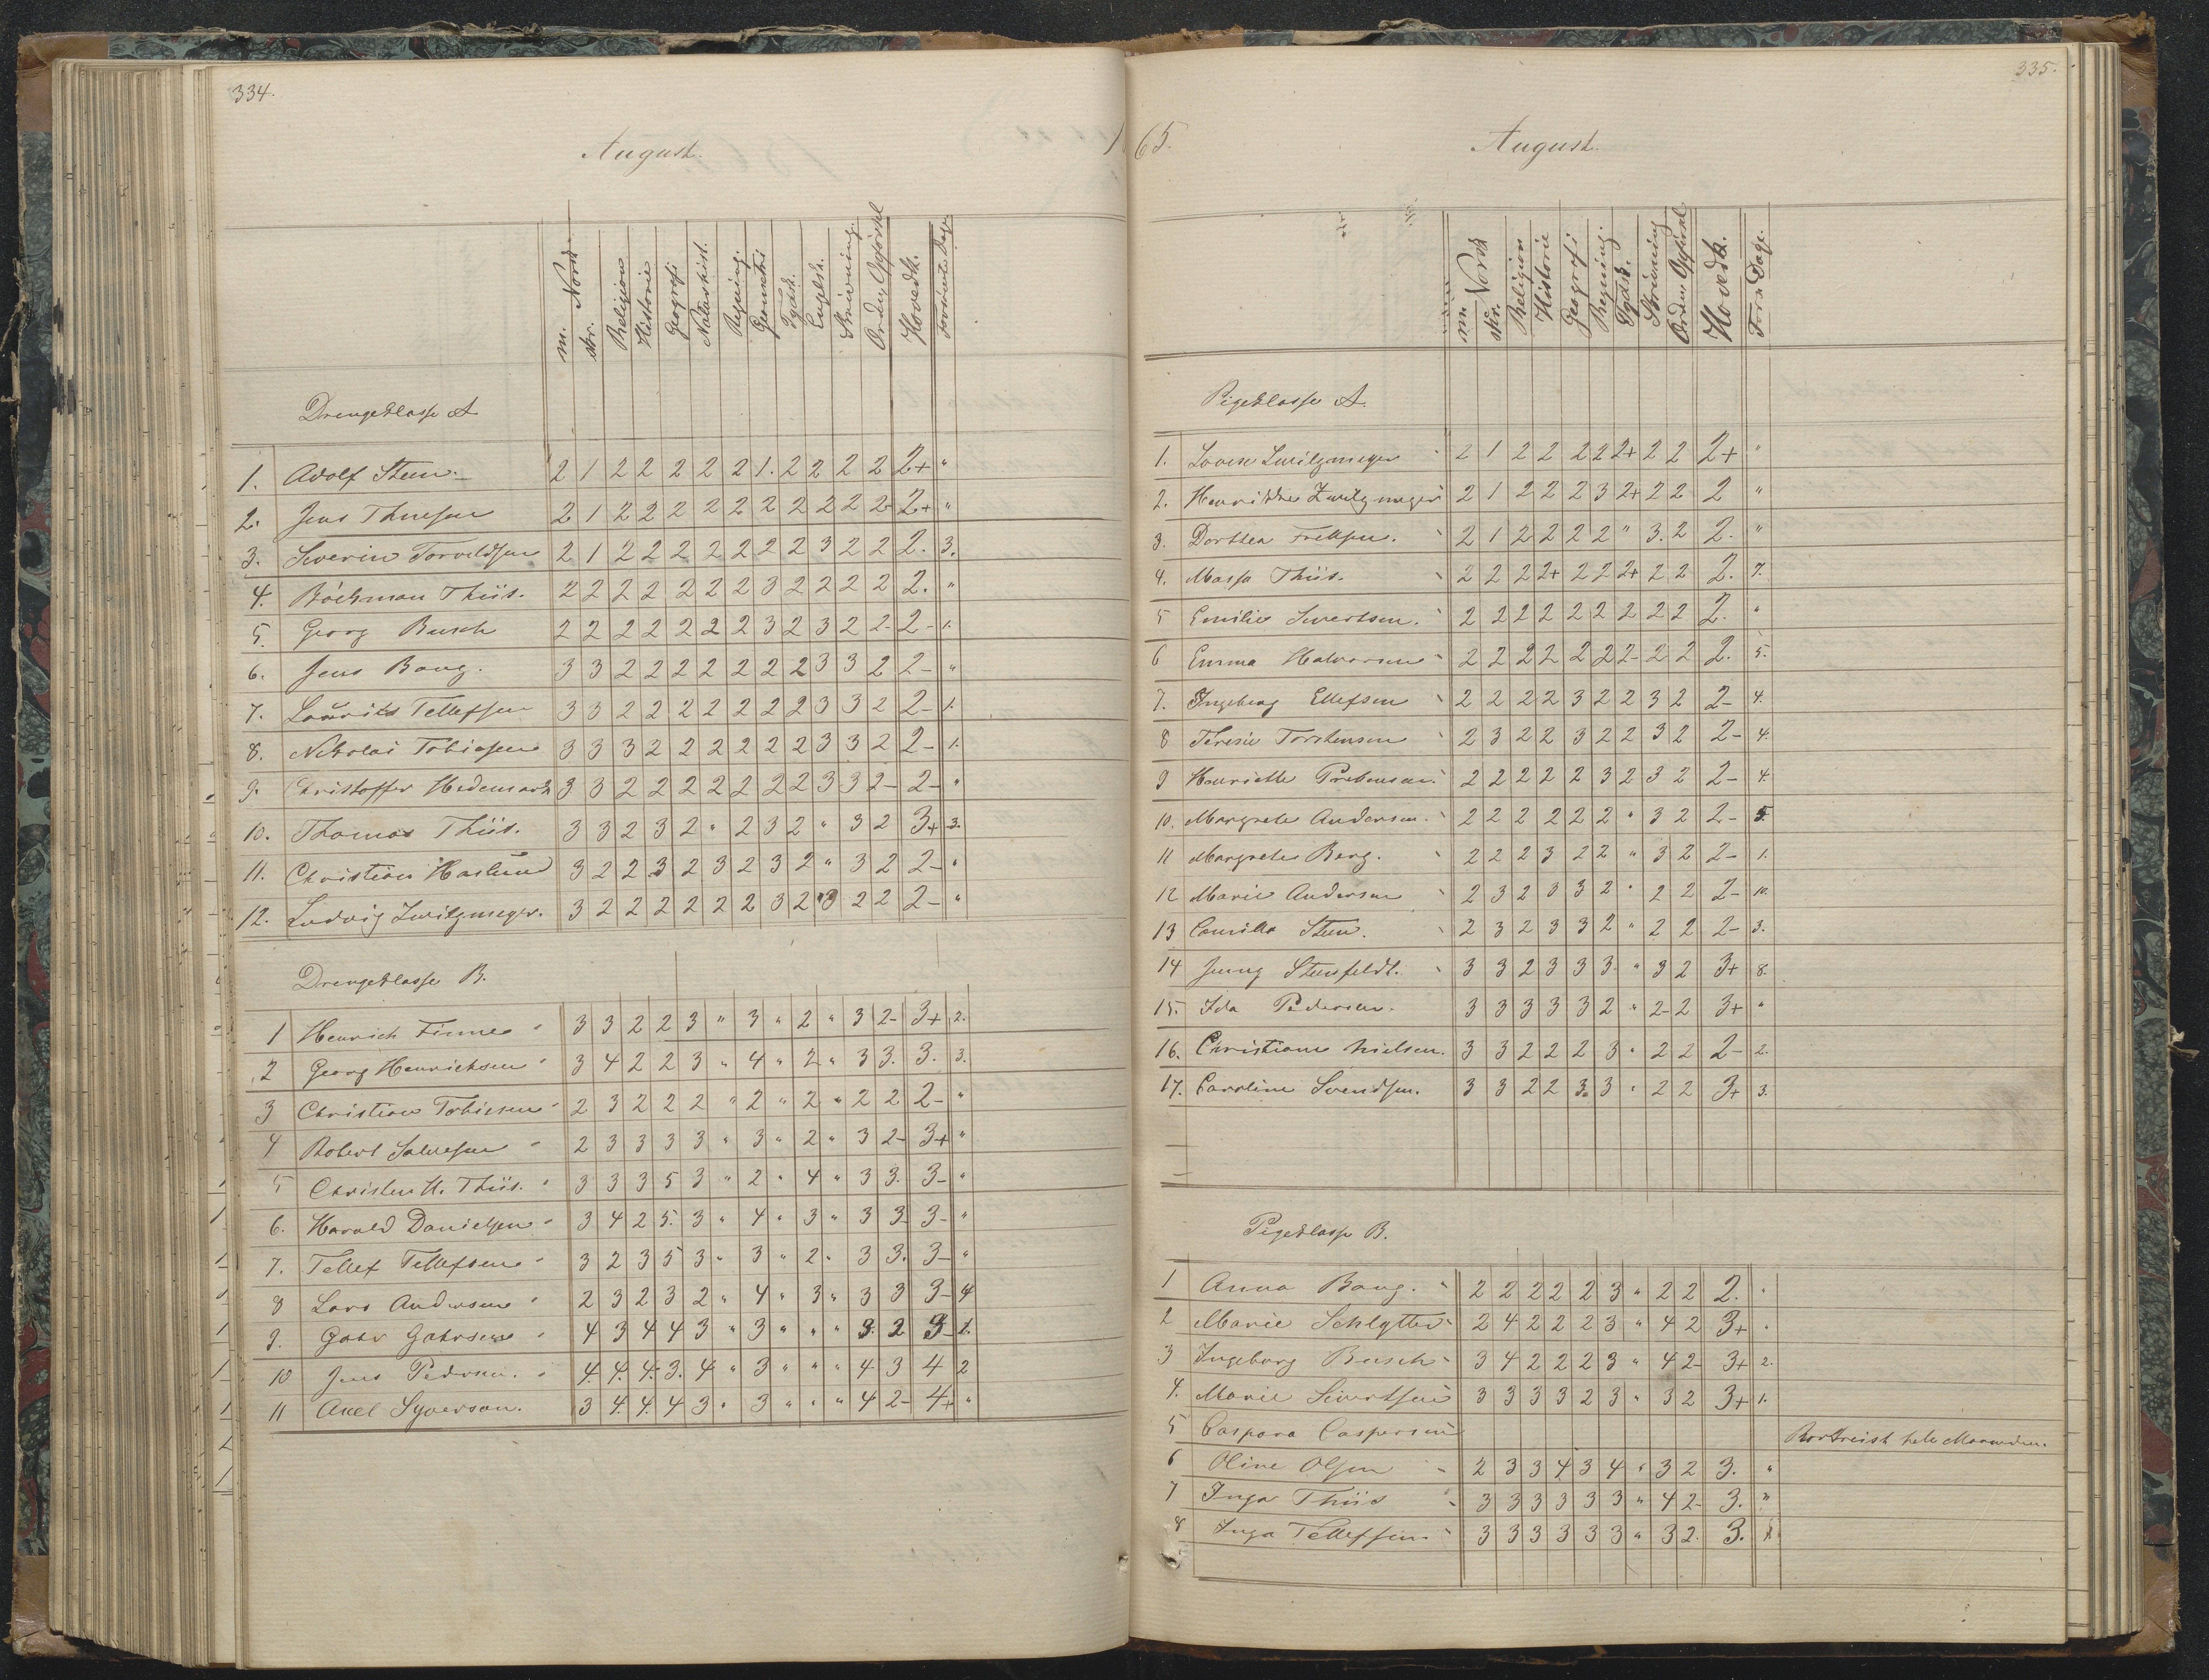 334.
August.
m. Norsk
skr.
Religion
Historie
Geografi
Naturhist.
Regning.
Geometri
Tydsk.
Englsk.
Skrivning.
Orden Opførsel
Hovedk.
Forsømte Dage
Drengeklasse A
1. Adolf Steen 2 1 2 2 2 2 2 1. 2 2 2 2 2+ "
2. Jens Thuesen 2 1 2 2 2 2 2 2 2 2 2 2 2+ "
3. Severin Torvildsen 2 1 2 2 2 2 2 2 2 3 2 2 2. 3.
4. Bóckman Thiis. 2 2 2 2 2 2 2 3 2 2 2 2 2. "
5. Georg Busch 2 2 2 2 2 2 2 3 2 3 2 2- 2- 1.
6. Jens Bang. 3 3 2 2 2 2 2 2 2 3 3 2 2- "
7. Laurits Tellefsen 3 3 2 2 2 2 2 2 2 3 3 2 2- 1.
8. Nikolai Tobiasen 3 3 3 2 2 2 2 2 2 3 3 2 2- 1.
9. Christoffer Hedemark 3 3 2 2 2 2 2 2 2 3 3 2- 2- "
10. Thomas Thiis. 3 3 2 3 2 " 2 3 2 " 3 2 3+ 3.
11. Christian Haslund 3 2 2 3 2 3 2 3 2 " 3 2 2- "
12. Ludvig Zwilgmeyer. 3 2 2 2 2 2 2 3 2 3 2 2 2- "
Drengeklasse B.
1 Henrich Finne 3 3 2 2 3 " 3 " 2 " 3 2- 3+ 2.
2 Georg Henrichsen 3 4 2 2 3 " 4 " 2 " 3 3. 3. 3.
3 Christian Tobiesen 2 3 2 2 2 " 2 " 2 " 2 2 2- "
4 Robert Salvesen 2 3 3 3 3 " 3 " 2 " 3 2- 3+ "
5 Christen H. Thiis. 3 3 3 5 3 " 2 " 4 " 3 3. 3- "
6. Harald Danielsen 3 4 2 5. 3 " 4 " 3 " 3 3 3- "
7. Tellef Tellefsen 3 2 3 5 3 " 3 " 2 " 3 3. 3- "
8 Lars Andersen 2 3 2 3 2 " 4 " 3 " 3 3 3- 4
9. Gahr Gahrsen 4 3 4 4 3 " 3 " " " 3. 2 3- 1.
10 Jens Pedersen. 4. 4. 4. 3. 4 " 3 " " " 4 3 4 2
11 Axel Syverson. 3 4. 4. 4 3 " 3 " " " 4 2- 4+ "
335.
65.
August.
m. Norsk
skr.
Religion
Historie
Geografi
Regning.
Tydsk.
Skrivning
Orden Opførsel
Hovedk.
Forsø Dage.
Pigeklasse A.
1. Lovise Zwilgmeyer 2 1 2 2 2 2 2+ 2 2 2+ "
2. Henrikke Zwilgmeyer 2 1 2 2 2 3 2+ 2 2 2 "
3. Dorthea 2 1 2 2 2 2 " 3. 2 2. "
4. Massa Thiis. 2 2 2 2+ 2 2 2+ 2 2 2. 7.
5 Emilie Sivertsen. 2 2 2 2 2 2 2 2 2 2. "
6 Emma Halvorsen 2 2 2 2 2 2 2- 2 2 2. 5.
7. Ingeborg Ellefsen 2 2 2 2 3 2 2 3 2 2- 4.
8 Teresie Torstensen 2 3 2 2 3 2 2 3 2 2- 4.
9 Henriette Prebensen. 2 2 2 2 2 3 2 3 2 2- 4.
10. Margrete Andersen. 2 2 2 2 2 2 " 3 2 2- 5.
11 Margrete Berg. 2 2 2 3 2 2 " 3 2 2- 1.
12 Marie Andersen 2 3 2 3 3 2 " 2 2 2- 10.
13 Camilla Steen. 2 3 2 3 3 2 " 2 2 2- 3.
14 Jenny Stensfeldt. 3 3 2 3 3 3. " 3 2 3+ 8.
15. Ida Pedersen. 3 3 3 3 3 2 " 2- 2 3+ "
16. Christiane Nielsen. 3 3 2 2 2 3 " 2 2 2- 2.
17. Caroline Svendsen. 3 3 2 2 3. 3 " 2 2 3+ 3.
Pigeklasse B.
1 Anna Bang. 2 2 2 2 2 3 " 2 2 2. "
2 Marie Schlytter 2 4 2 2 2 3 " 4 2 3+ "
3 Ingeborg Busch 3 4 2 2 2 3 " 4 2- 3+ 2.
4. Marie Sivertsen 3 3 3 3 2 3 " 3 2 3+ 1.
5 Caspara Caspersen Bortreist hele Maaneden.
6 Oline Olsen 2 3 3 4 3 4 " 3 2 3. "
7 Inga Thiis 3 3 3 3 3 3 " 4 2- 3. "
8 Inga Tellefsen 3 3 3 3 3 3 " 3 2. 3.